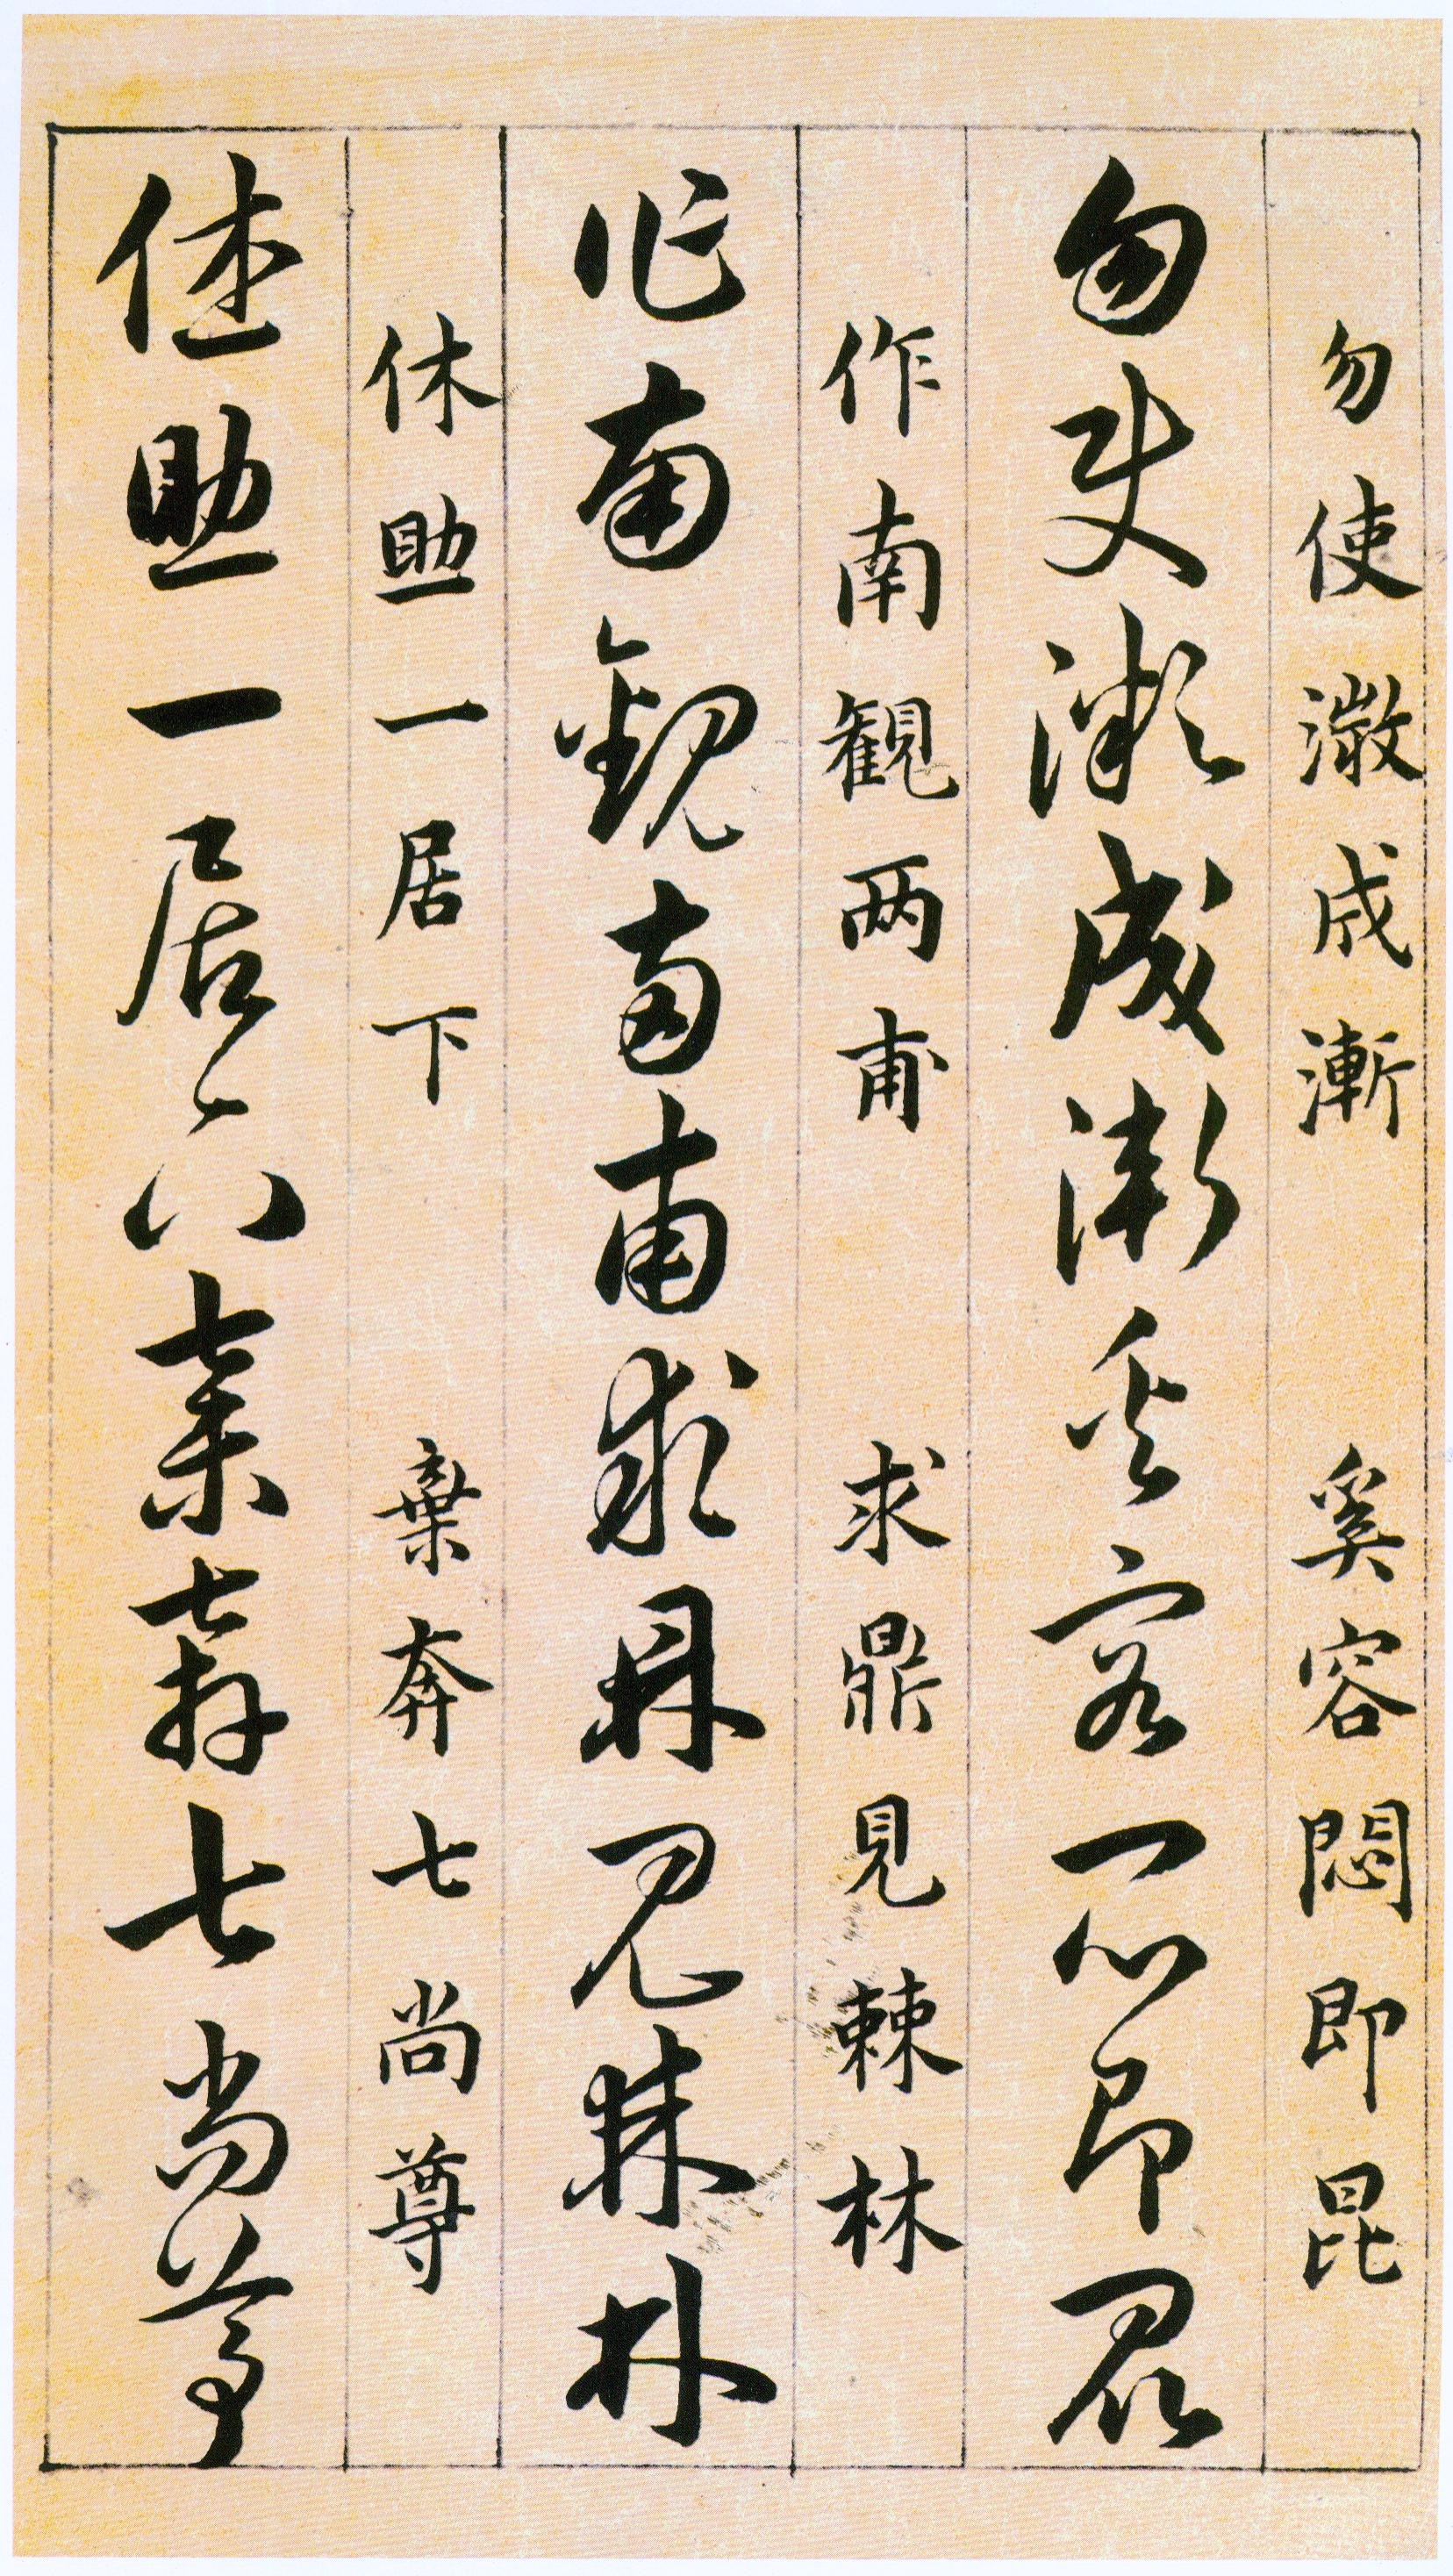 勿使澂成漸 奚容悶即昆
勿使澂成漸奚容悶即昆
作南観两甫 求鼎見棘林
作南観两甫求鼎見棘林
休助一居下 棄奔七尚尊
休助一居下棄奔七尚尊